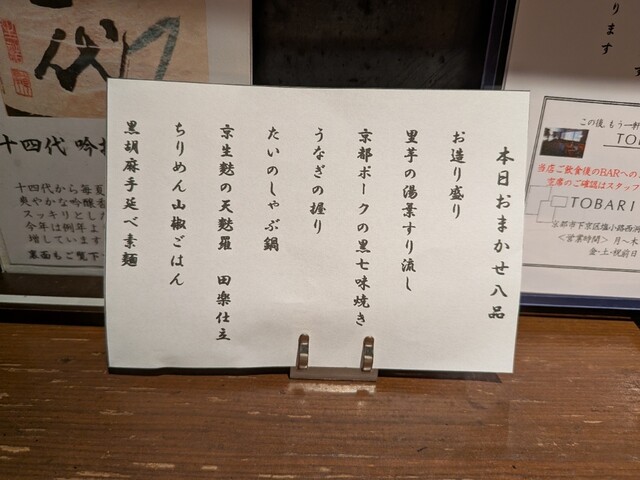 本日おまかせ八品
お造り盛り
里芋の湯葉すり流し
京都ポークの黒七味焼き
うなぎの握り
たいのしゃぶ鍋
京生麩の天麩羅 田楽仕立
ちりめん山椒ごはん
黒胡麻手延べ素麺
十四代 吟
十四代から毎夏
爽やかな吟醸香
スッキリとした
今年は例年より
増しています
裏面もご覧下
ります
この後、もう一軒
TO
当店ご飲食後のBARへの
空席のご確認はスタッフ
TOBARI
京都市下京区塩小路西洞
<営業時間> 月~木
金・土・祝前日